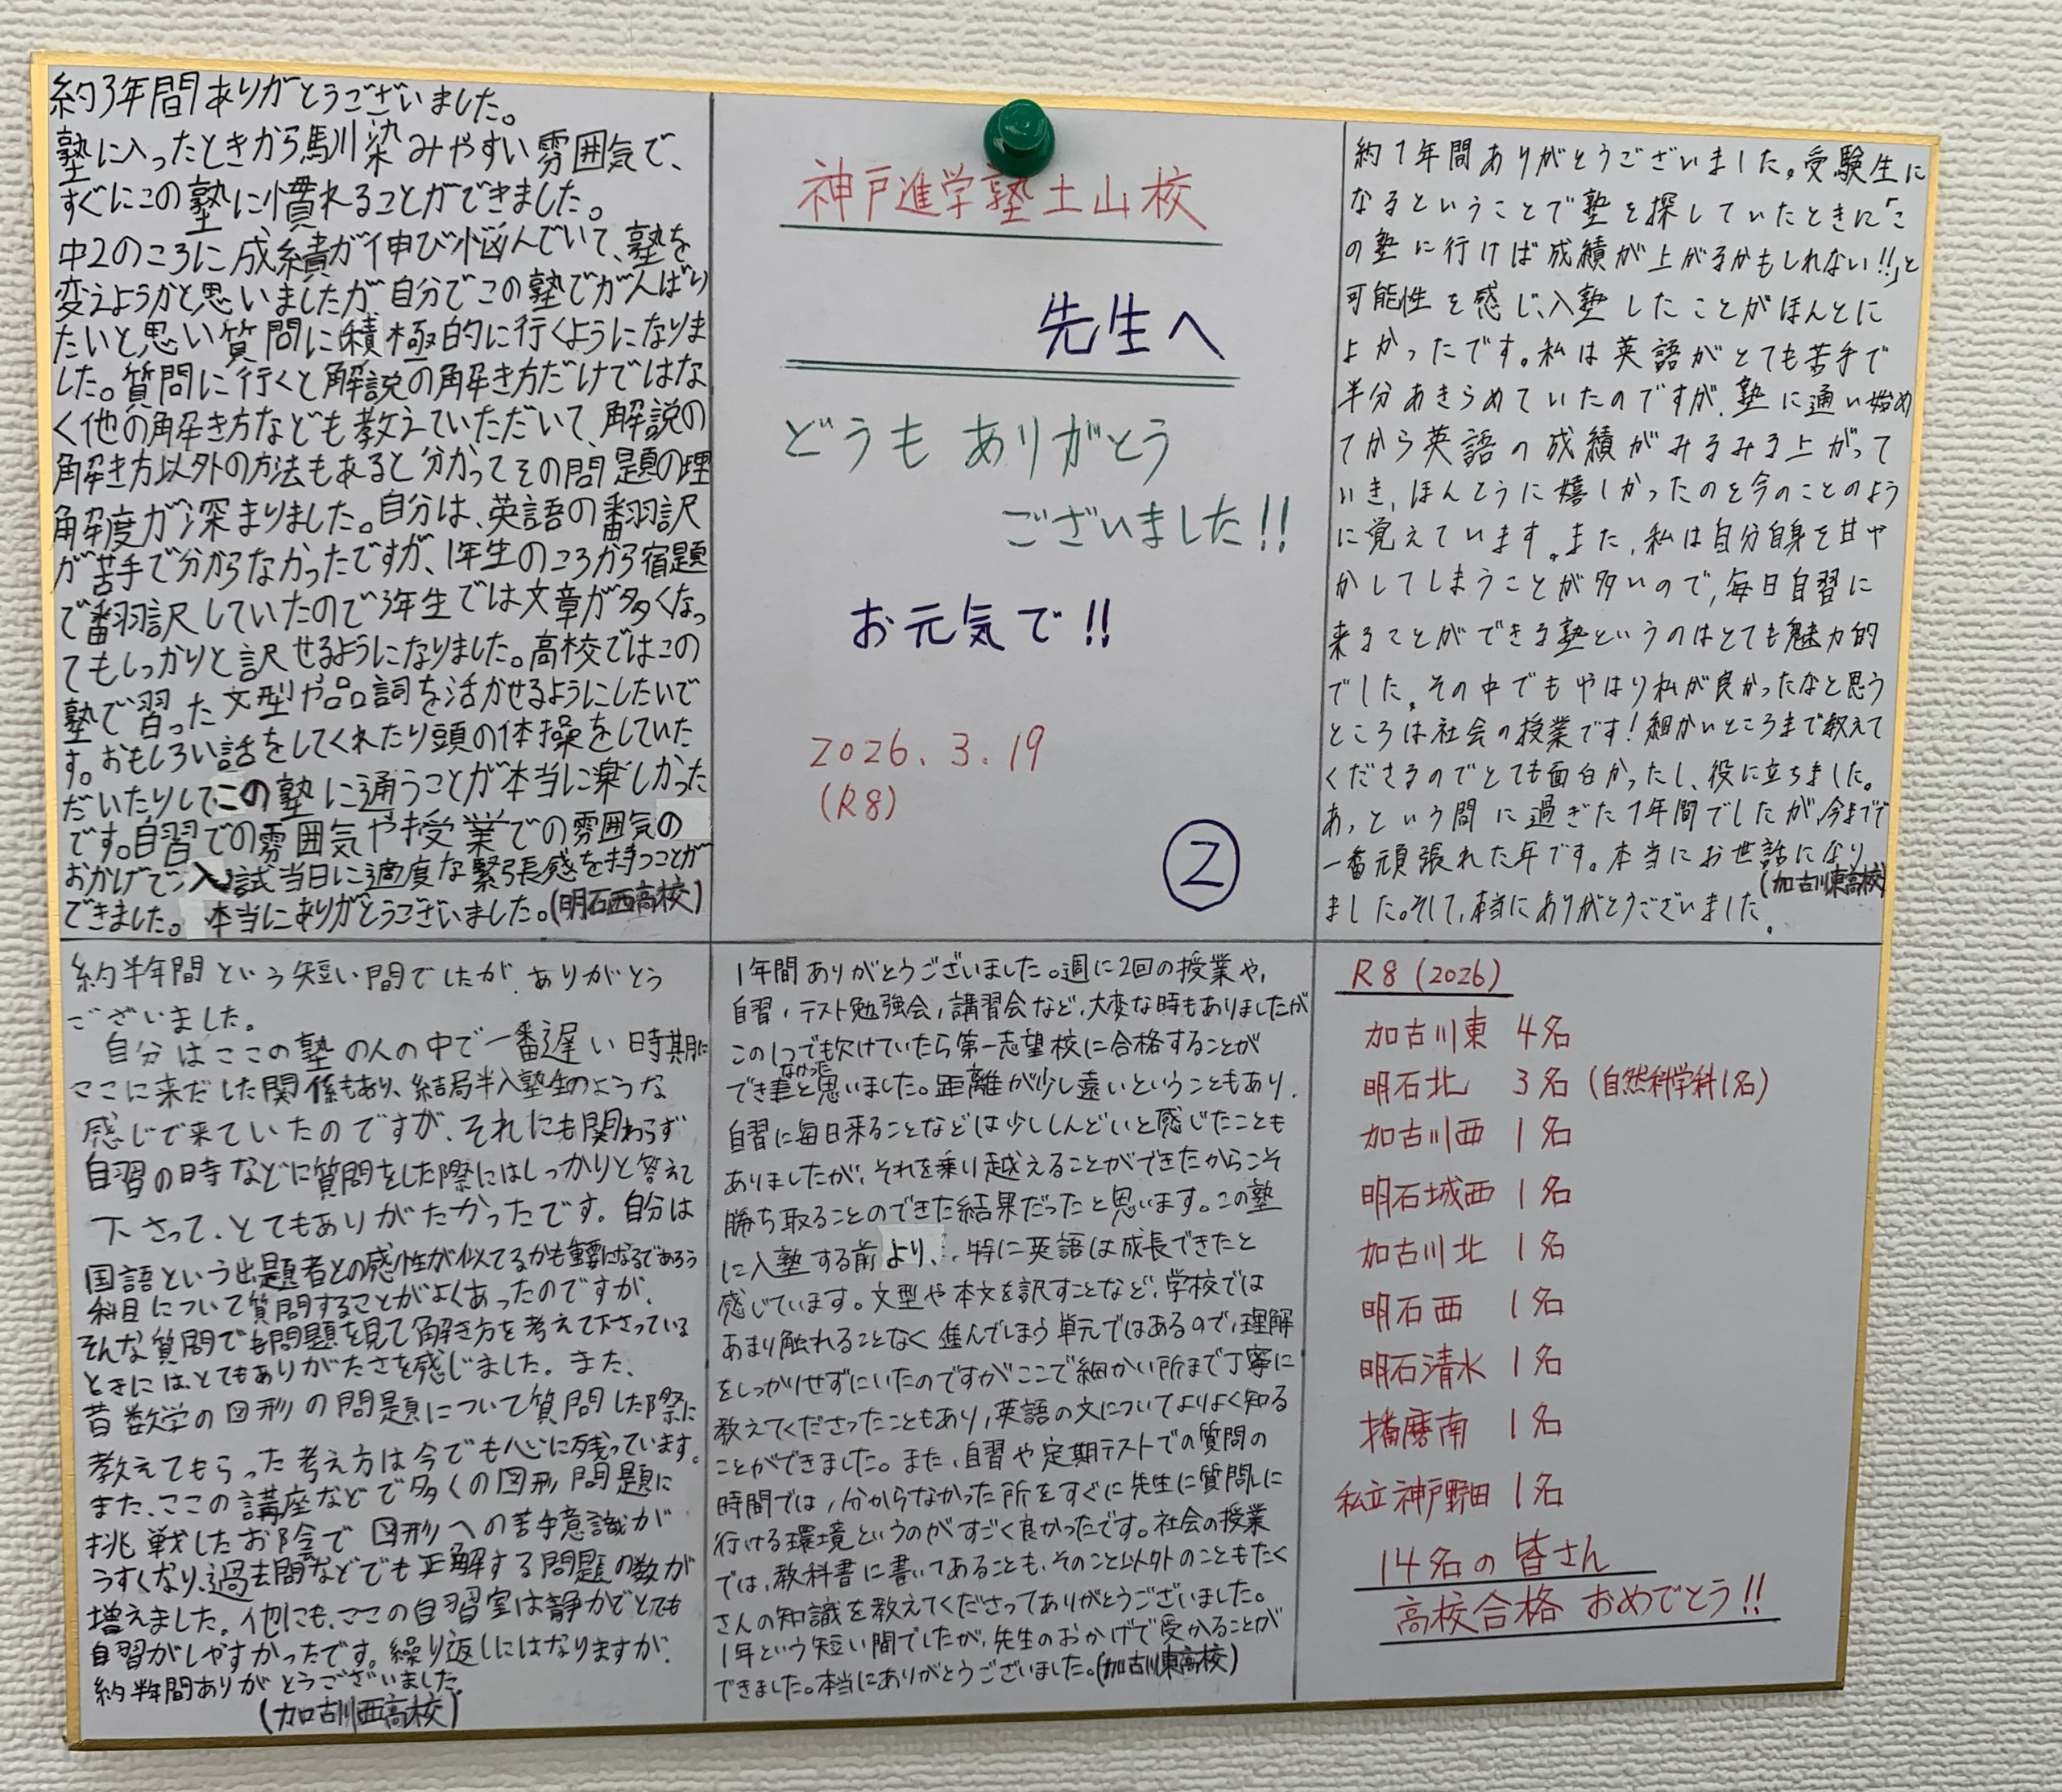 約3年間ありがとうございました。
塾に入ったときから馴染みやすい雰囲気で、
すぐにこの塾に慣れることができました。
中2のころに成績が伸び悩んでいて、塾を
変えようかと思いましたが自分でこの塾でがんばり
たいと思い質問に積極的に行くようになりま
した。質問に行くと解説の解き方だけではな
く他の解き方なども教えていただいて、解説の
解き方以外の方法もあると分かってその問題の理
解度が深まりました。自分は、英語の翻訳
が苦手で分からなかったですが、1年生のころから宿題
で翻訳していたので3年生では文章が多くなっ
てもしっかりと訳せるようになりました。高校ではこの
塾で習った文型や品詞を活かせるようにしたいで
す。おもしろい話をしてくれたり頭の体操をしていた
だいたりしてこの塾に通うことが本当に楽しかった
です。自習での雰囲気や授業での雰囲気の
おかげで入試当日に適度な緊張感を持つことが
できました。本当にありがとうございました。(明石西高校)
神戸進学塾土山校
先生へ
どうもありがとう
ございました!!
お元気で!!
2026.3.19
(R8)
②
約1年間ありがとうございました。受験生に
なるということで塾を探していたときに「こ
の塾に行けば成績が上がるかもしれない!!」と
可能性を感じ、入塾したことがほんとに
よかったです。私は英語がとても苦手で
半分あきらめていたのですが、塾に通い始め
てから英語の成績がみるみる上がって
いき、ほんとうに嬉しかったのを今のことのよう
に覚えています。また、私は自分自身を甘や
かしてしまうことが多いので、毎日自習に
来ることができる塾というのはとても魅力的
でした。その中でもやはり私が良かったなと思う
ところは社会の授業です!細かいところまで教えて
くださるのでとても面白かったし、役に立ちました。
あっという間に過ぎた1年間でしたが、今までで
一番頑張れた年です。本当にお世話になり
ました。そして、本当にありがとうございました。
(加古川東高校)
約半年間という短い間でしたが、ありがとう
ございました。
自分はここの塾の人の中で一番遅い時期に
ここに来だした関係もあり、結局半入塾生のような
感じで来ていたのですが、それにも関わらず
自習の時などに質問をした際にはしっかりと答えて
下さって、とてもありがたかったです。自分は
国語という出題者との感性が似てるかも重要になるであろう
科目について質問することがよくあったのですが、
そんな質問でも問題を見て解き方を考えて下さっている
ときには、とてもありがたさを感じました。また、
昔数学の図形の問題について質問した際に
教えてもらった考え方は今でも心に残っています。
また、ここの講座などで多くの図形問題に
挑戦したお陰で図形への苦手意識が
うすくなり、過去問などでも正解する問題の数が
増えました。他にも、ここの自習室は静かでとても
自習がしやすかったです。繰り返しにはなりますが、
約半年間ありがとうございました。
(加古川西高校)
1年間ありがとうございました。週に2回の授業や、
自習、テスト勉強会、講習会など、大変な時もありましたが
この1つでも欠けていたら第一志望校に合格することが
できなかったと思いました。距離が少し遠いということもあり、
自習に毎日来ることなどは少ししんどいと感じたことも
ありましたが、それを乗り越えることができたからこそ
勝ち取ることのできた結果だったと思います。この塾
に入塾する前より、特に英語は成長できたと
感じています。文型や本文を訳すことなど、学校では
あまり触れることなく進んでしまう単元ではあるので、理解
をしっかりせずにいたのですがここで細かい所まで丁寧に
教えてくださったこともあり、英語の文についてよりよく知る
ことができました。また、自習や定期テストでの質問の
時間では、分からなかった所をすぐに先生に質問しに
行ける環境というのがすごく良かったです。社会の授業
では、教科書に書いてあることも、そのこと以外のこともたく
さんの知識を教えてくださってありがとうございました。
1年という短い間でしたが、先生のおかげで受かることが
できました。本当にありがとうございました。(加古川東高校)
R8(2026)
加古川東 4名
明石北 3名(自然科学科1名)
加古川西 1名
明石城西 1名
加古川北 1名
明石西 1名
明石清水 1名
播磨南 1名
私立神戸野田 1名
14名の皆さん
高校合格おめでとう!!